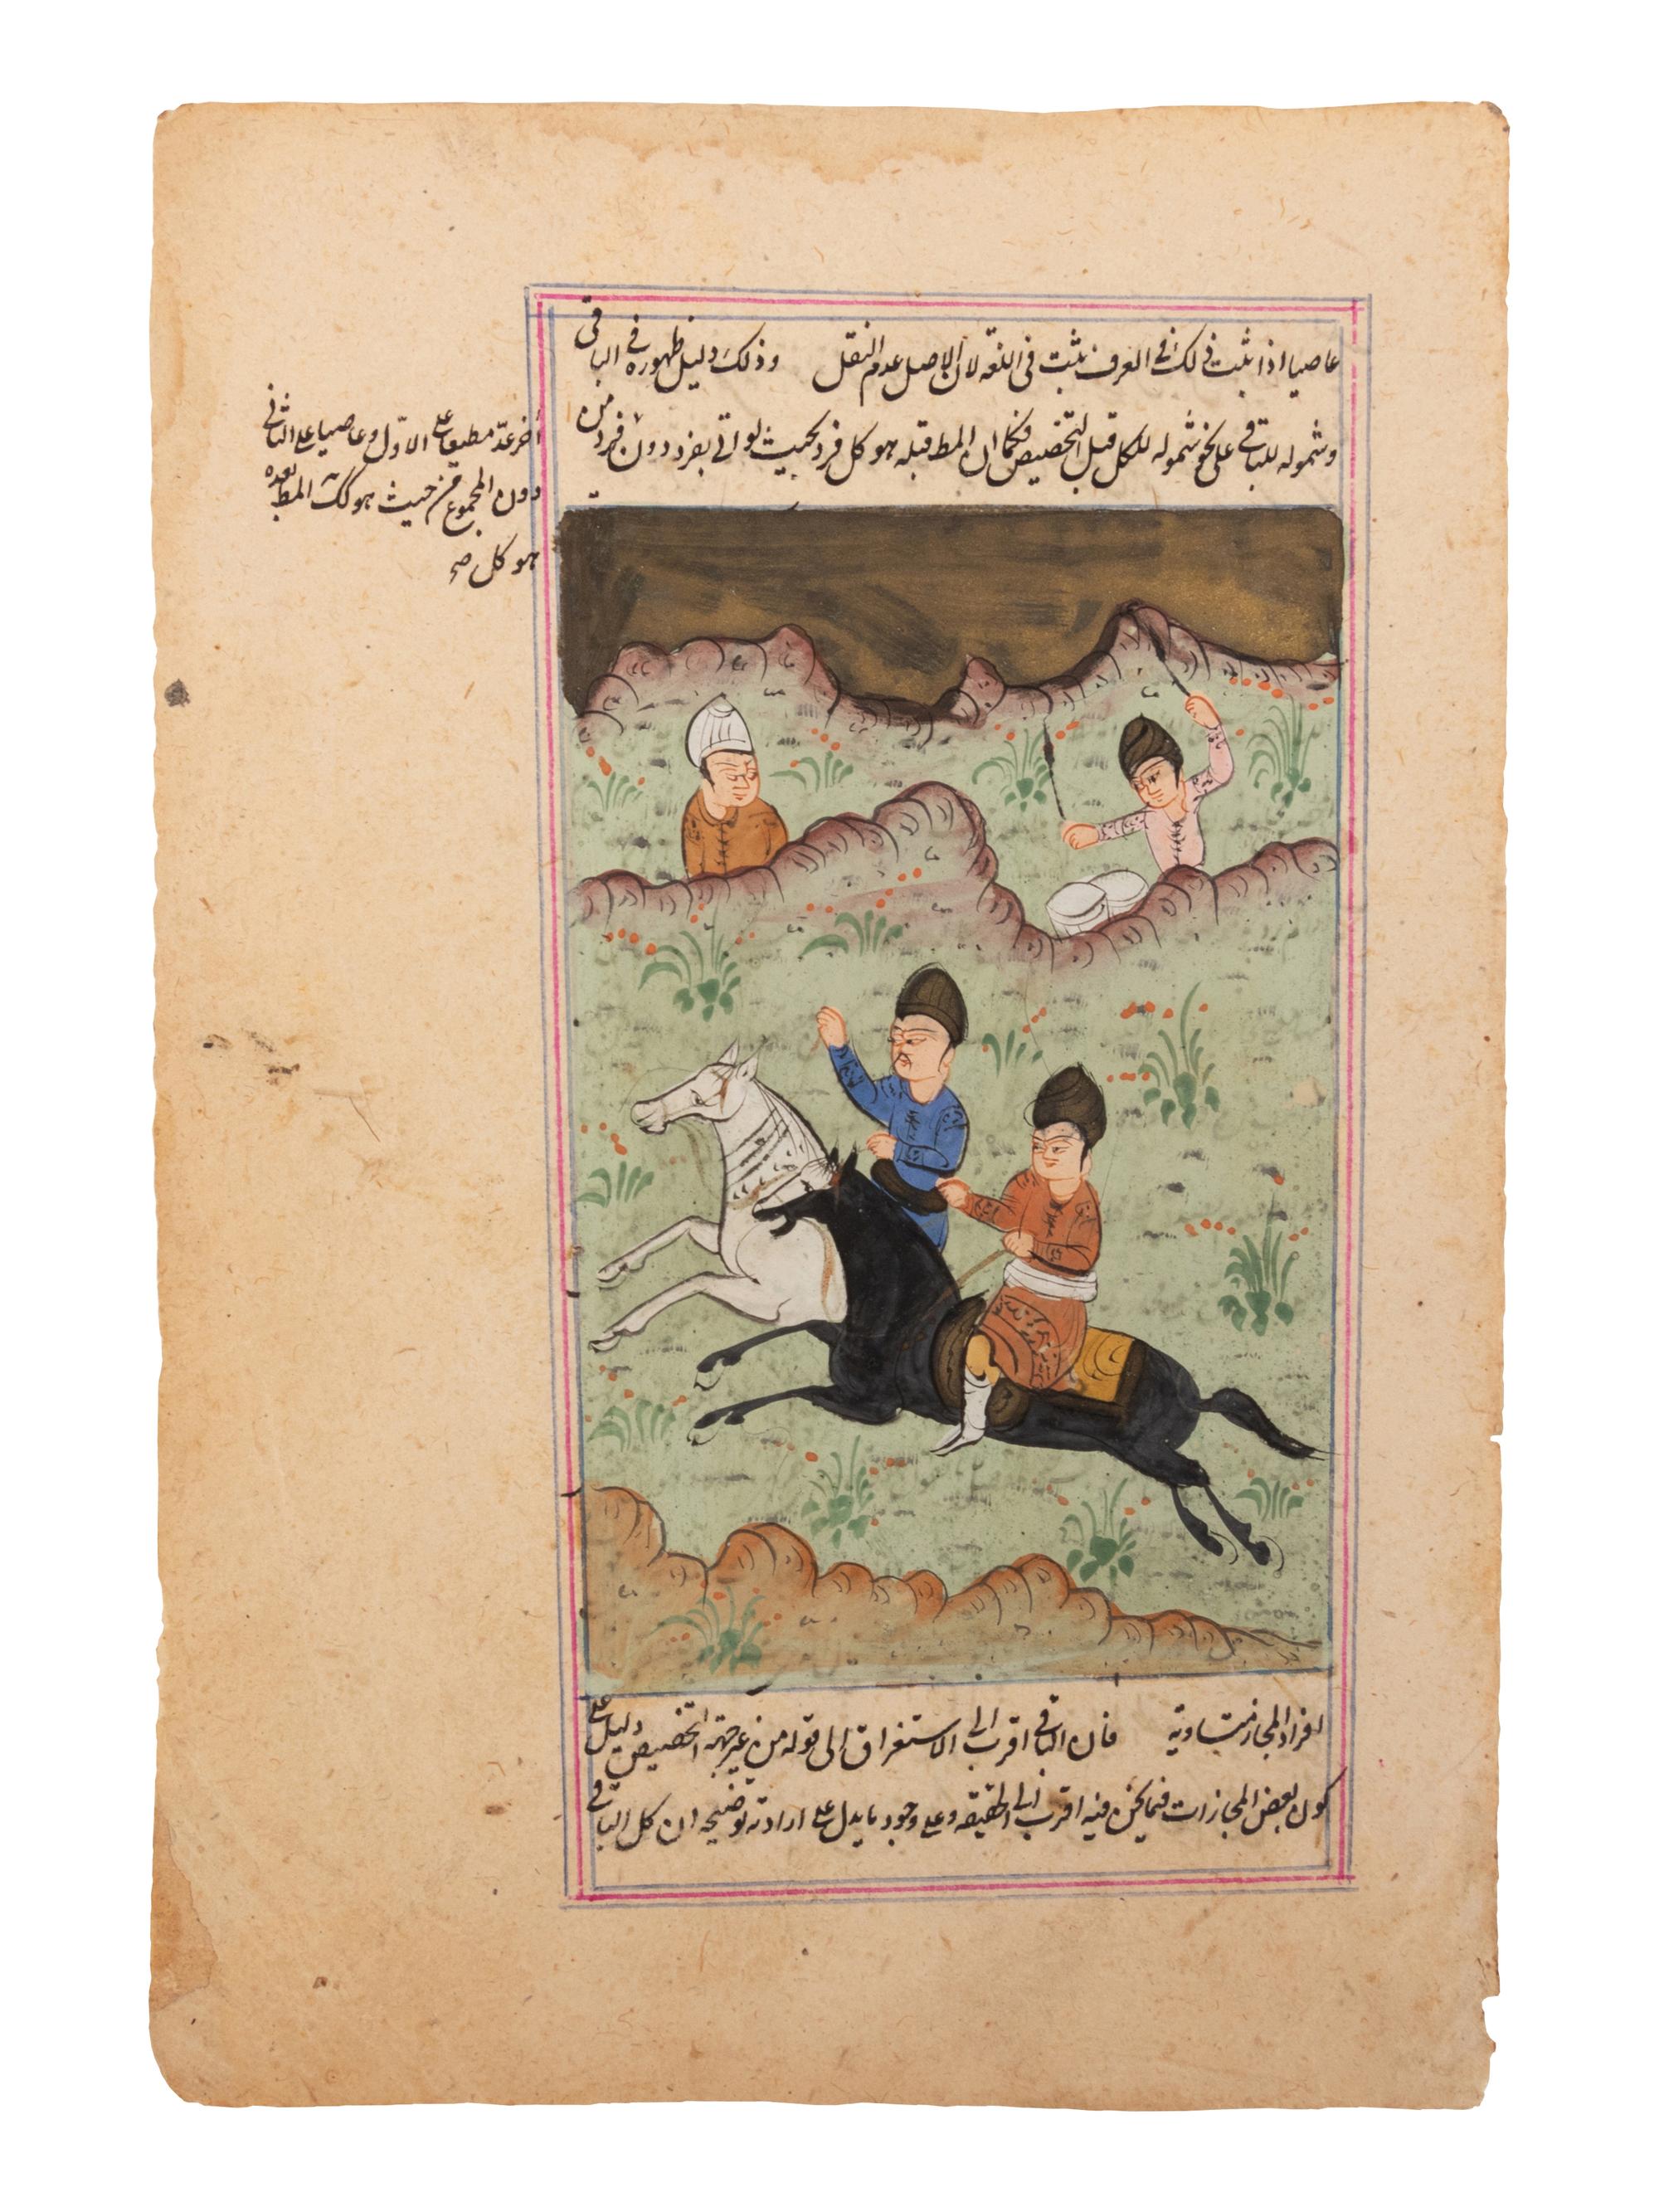 عاصيا اذا ثبت ذلك في العرف ثبت في اللغة لان الاصل عدم النقل وذلك دليل ظهوره في الباقي
وشموله للباقي على نحو شموله للكل قبل التخصيص فكما ان المط قبله هو كل فرد بحيث لو اتى بفرد دون فرد من
افراد المجاز متساوية فان الباقي اقرب الى الاستغراق الى قوله من غير جهة التخصيص دليل على
كون بعض المجازات فيما يكون فيه اقرب الى الحقيقة وعلى وجود ما يدل على ارادته توضيحه ان كل الباقي
آخر عدّ مطيعا على الاوّل وعاصيا على الثاني
دون المجموع من حيث هو كك المط بعده
هو كل صح